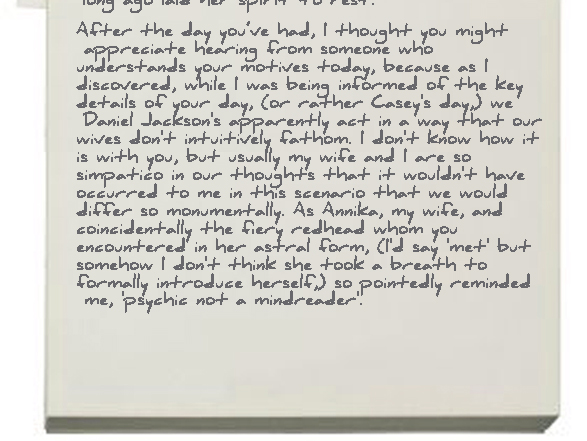 long ago laid her spirit to rest.
After the day you've had, I thought you might
appreciate hearing from someone who
understands your motives today, because as I
discovered, while I was being informed of the key
details of your day, (or rather Casey's day,) we
Daniel Jackson's apparently act in a way that our
wives don't intuitively fathom. I don't know how it
is with you, but usually my wife and I are so
simpatico in our thoughts that it wouldn't have
occurred to me in this scenario that we would
differ so monumentally. As Annika, my wife, and
coincidentally the fiery redhead whom you
encountered in her astral form, (I'd say 'met' but
somehow I don't think she took a breath to
formally introduce herself,) so pointedly reminded
me, 'psychic not a mindreader'.